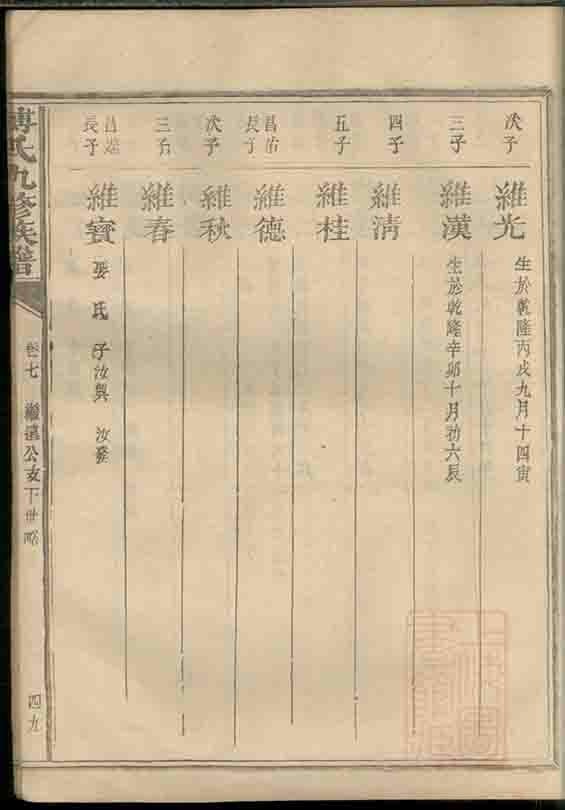 次子
維光
生於乾隆丙戌九月十四寅
三子
維漢
生於乾隆辛卯十月初六辰
四子
維淸
五子
維桂
昌佑長子
維德
次子
維秋
三子
維春
長子
維寳
張氏子汝興 汝發
氏九修族譜
卷七 繼遠公支下世略
四九